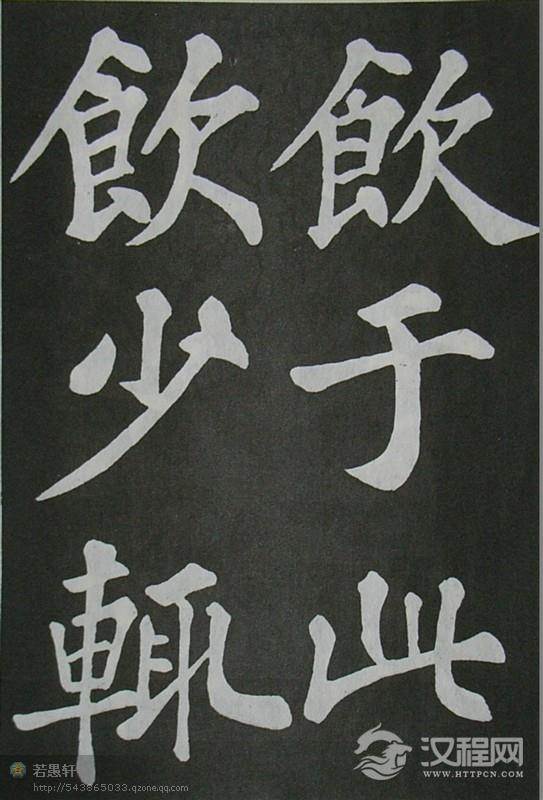 飲于此
飲少輒
若愚轩
http://543865033.qzone.qq.com
汉程网
WWW.HTTPCN.COM